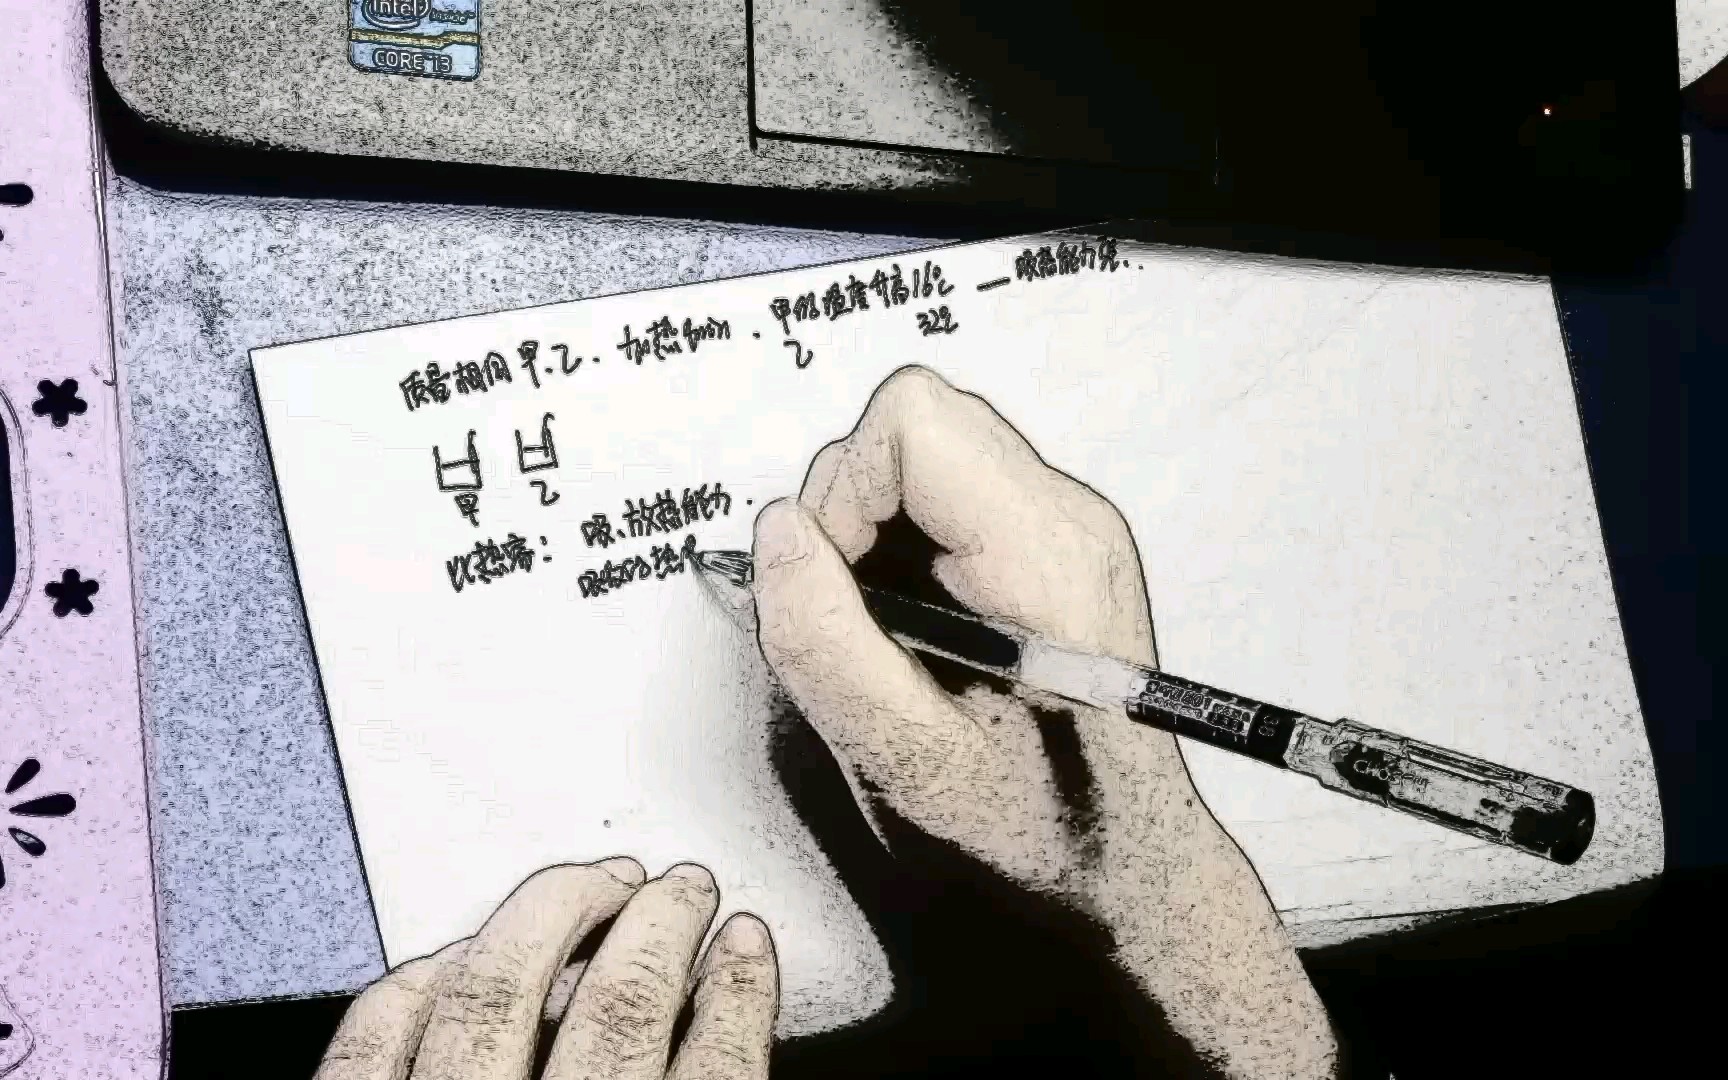 intel inside™
CORE i3
质量相同甲、乙. 加热5min. 甲的温度升高16℃ — 吸热能力强.
乙 32℃
甲 乙
比热容: 吸、放热能力.
吸收的热